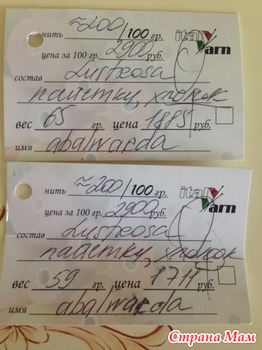 нить ≈200/100 гр. ital
цена за 100 гр. 2900 руб. yarn
состав Lustrosa
пайетки, хлопок
вес 65 гр. цена 1885 руб.
имя abalwarda
нить ≈200/100 гр. ital
цена за 100 гр. 2900 руб. yarn
состав Lustrosa
пайетки, хлопок
вес 59 гр. цена 1711 руб.
имя abalwarda
Страна Мам